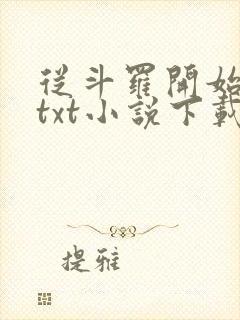 從斗羅開始
txt小說下載
提雅